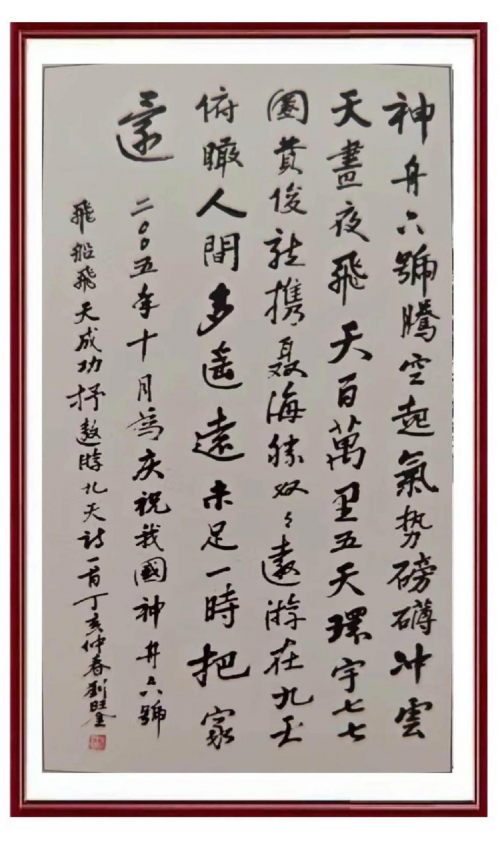 神舟六號騰空起氣势磅礴冲雲
天晝夜飛天百萬里五天環宇七七
圈費俊龙携聂海勝双々遨游在九天
俯瞰人間多遥遠未足一時把家
還
二〇〇五年十月為庆祝我國神舟六號
飛船飛天成功抒遨游九天詩一首丁亥仲春劉旺金